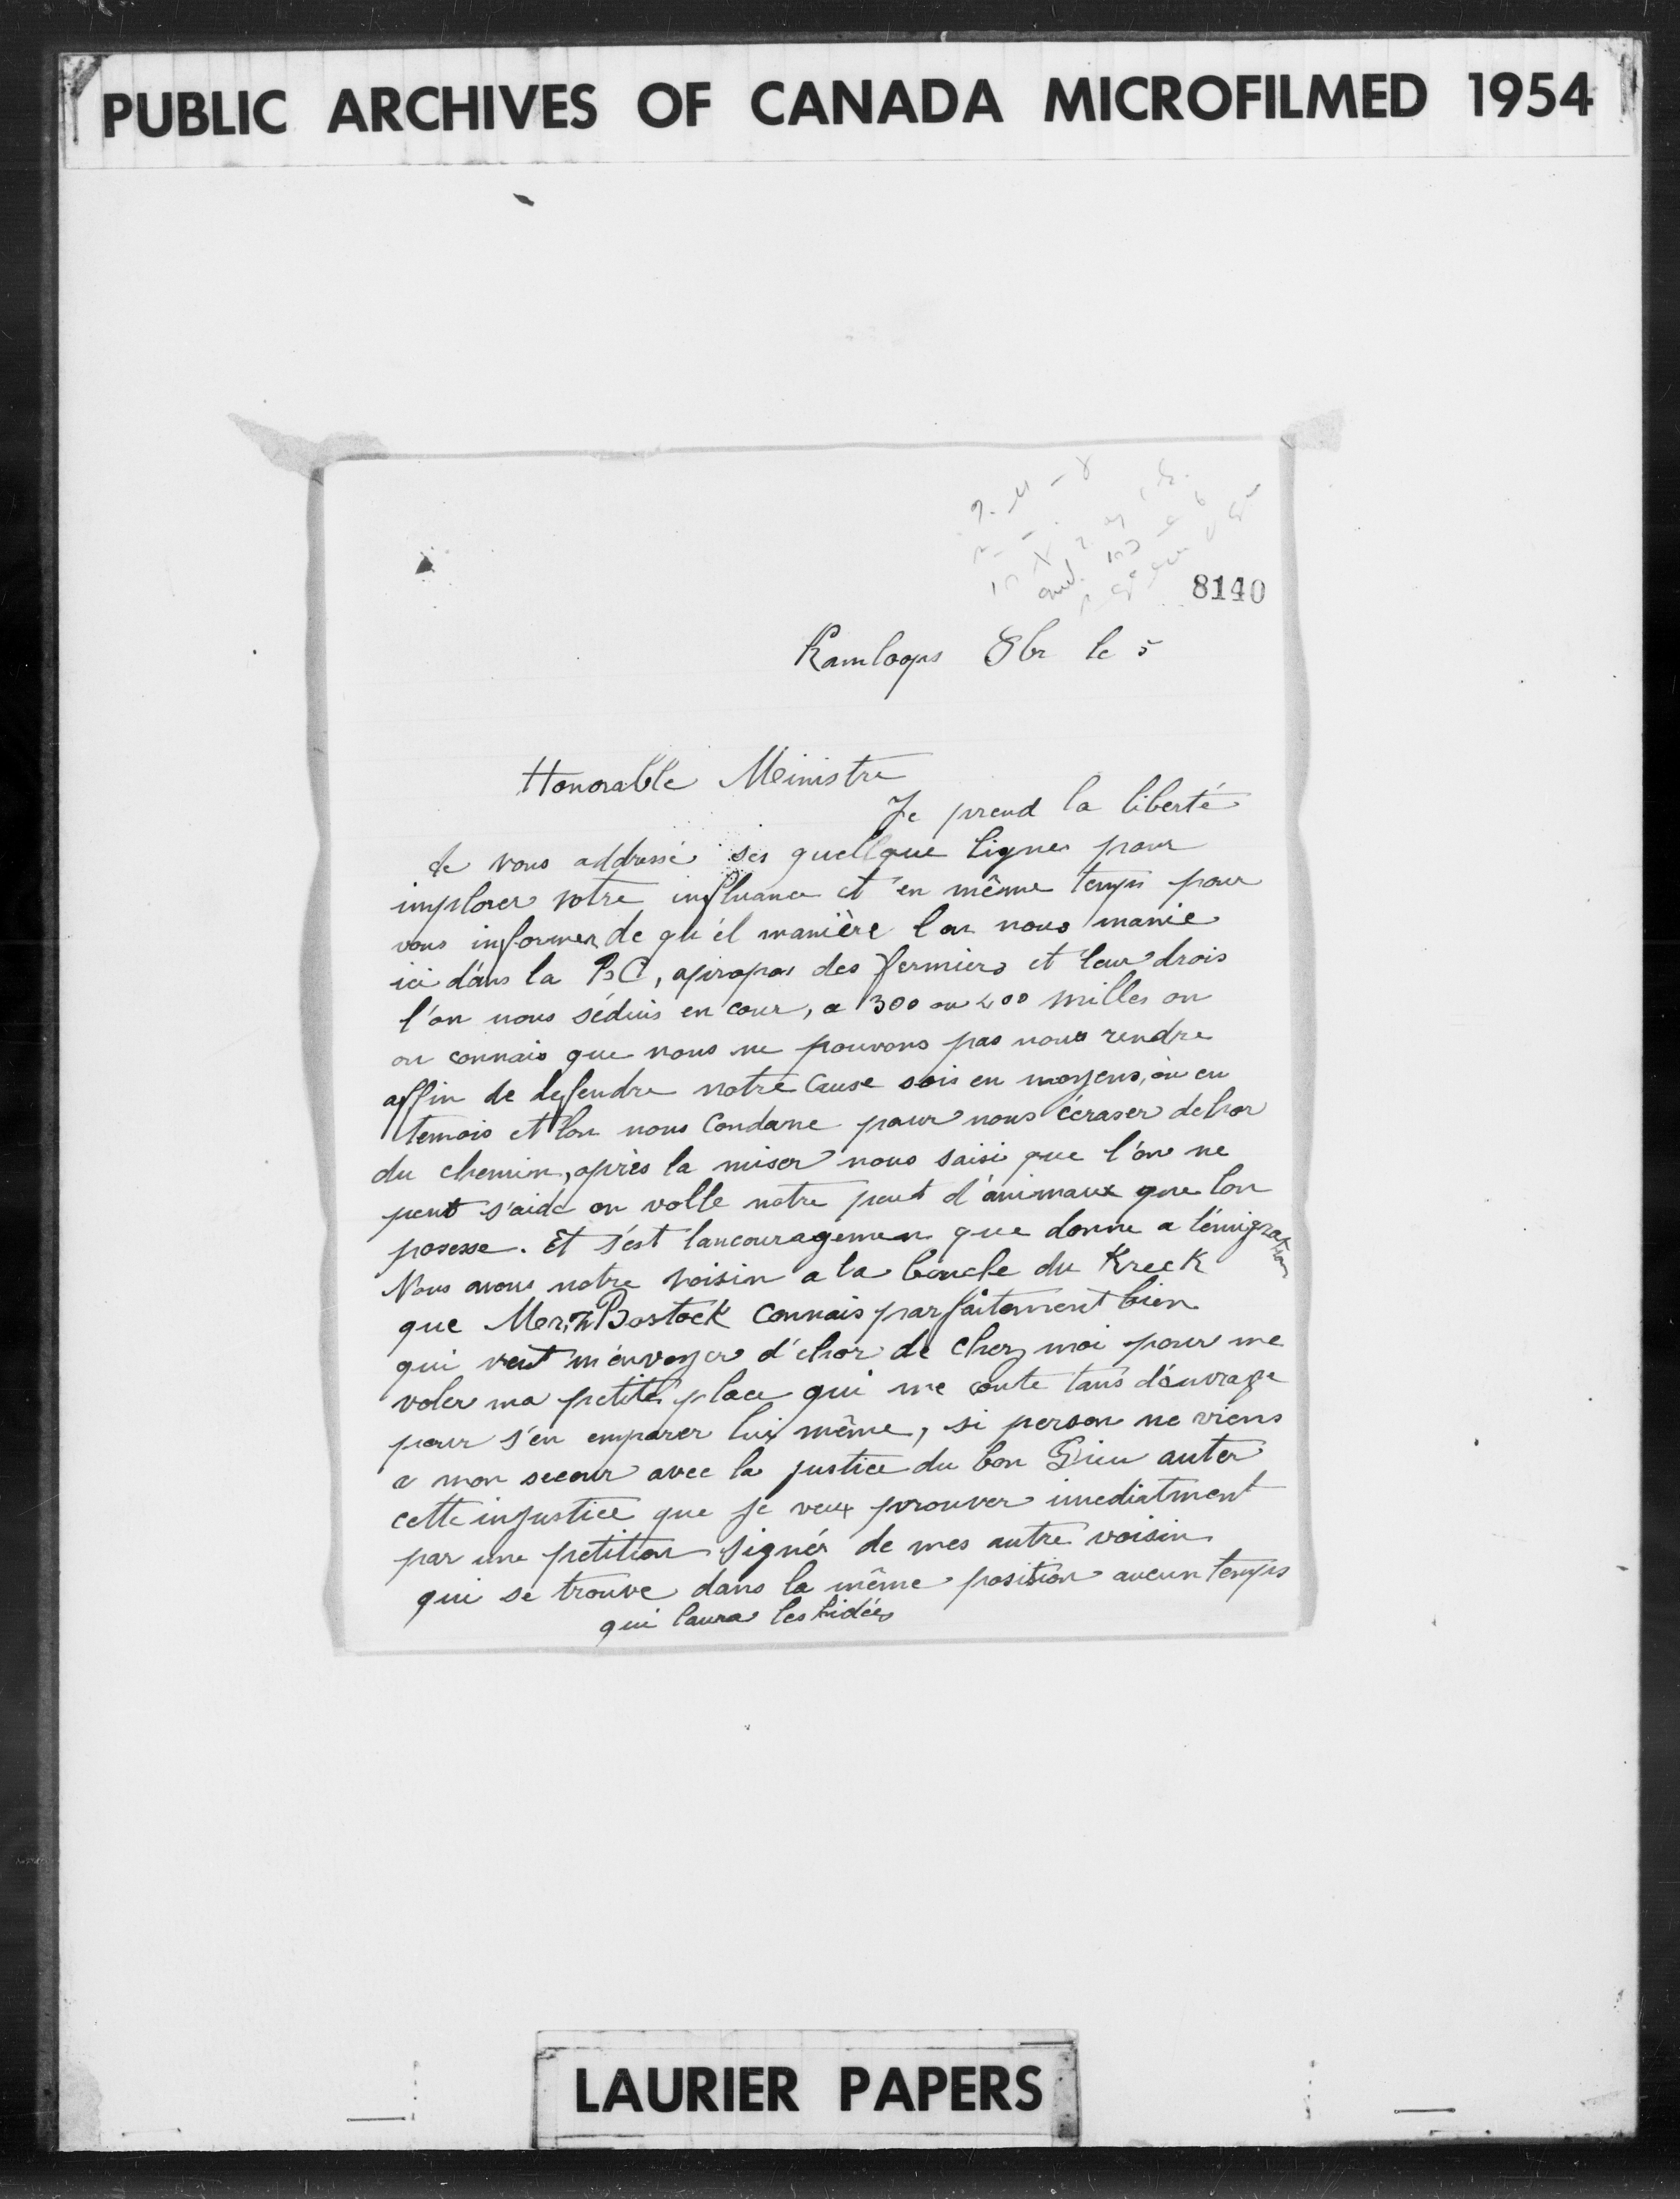 PUBLIC ARCHIVES OF CANADA MICROFILMED 1954
8140
Kamloops 8br le 5
Honorable Ministre
Je prend la liberté
de vous addressé ses quellque lignes pour
implorer votre influance et en même temps pour
vous informer de qu'él manière l'on nous manie
ici dans la B.C, apropos des fermiers et leur drois
l'on nous séduis en cour, a 300 ou 400 milles on
on connais que nous ne pouvons pas nous rendre
affin de deffendre notre Cause sois en moyens, ou en
temois et l'on nous Condane pour nous écraser dehor
du chemin, après la miser nous saisi que l'on ne
peut s'aidé on volle notre peut d'animaux que lon
posesse. Et s'est lancouragemen que donne a l'émigration
Nous avons notre voisin a la bouche du Kreek
que Mer. Bostock Connais parfaitement bien
qui veut m'envoyer d'ehor de chez moi pour me
voler ma petite place qui me coute tans d'ouvrage
pour s'en emparer lui même, si person ne viens
a mon secour avec la justice du bon Dieu auter
cette injustice que je veux prouver imediatment
par une petition signér de mes autre voisin
qui se trouve dans la même position aucun temps
qui laura les hidées
LAURIER PAPERS